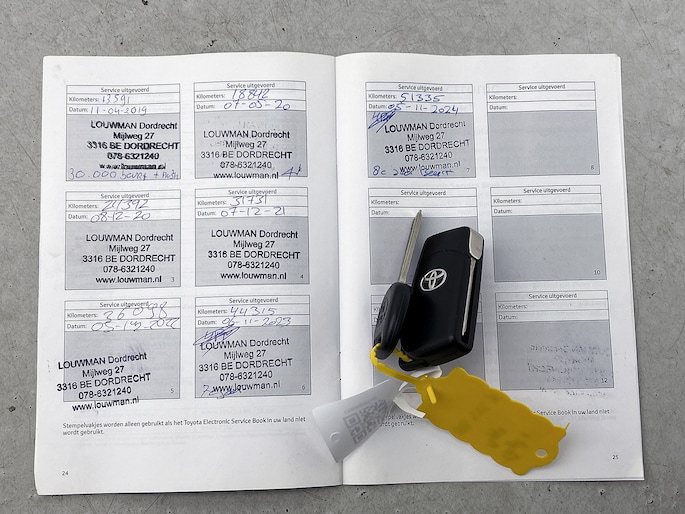 Service uitgevoerd
Kilometers: 13591
Datum: 11-04-2019
LOUWMAN Dordrecht
Mijlweg 27
3316 BE DORDRECHT
078-6321240
www.louwman.nl
30.000
Service uitgevoerd
Kilometers: 18842
Datum: 07-05-20
LOUWMAN Dordrecht
Mijlweg 27
3316 BE DORDRECHT
078-6321240
www.louwman.nl
Service uitgevoerd
Kilometers: 21392
Datum: 08-12-20
LOUWMAN Dordrecht
Mijlweg 27
3316 BE DORDRECHT
078-6321240
www.louwman.nl
3
Service uitgevoerd
Kilometers: 31731
Datum: 07-12-21
LOUWMAN Dordrecht
Mijlweg 27
3316 BE DORDRECHT
078-6321240
www.louwman.nl
4
Service uitgevoerd
Kilometers:
Datum:
LOUWMAN Dordrecht
Mijlweg 27
3316 BE DORDRECHT
078-6321240
www.louwman.nl
5
Service uitgevoerd
Kilometers: 44315
Datum: 06-11-2023
LOUWMAN Dordrecht
Mijlweg 27
3316 BE DORDRECHT
078-6321240
www.louwman.nl
6
Stempelvakjes worden alleen gebruikt als het Toyota Electronic Service Book in uw land niet
wordt gebruikt.
24
Service uitgevoerd
Kilometers: 51335
Datum: 05-11-2024
LOUWMAN Dordrecht
Mijlweg 27
3316 BE DORDRECHT
078-6321240
www.louwman.nl
7
Service uitgevoerd
Kilometers:
Datum:
8
Service uitgevoerd
Kilometers:
Datum:
Service uitgevoerd
Kilometers:
Datum:
10
Service uitgevoerd
Kilometers:
Datum:
12
Service Book in uw land niet
wordt gebruikt.
25